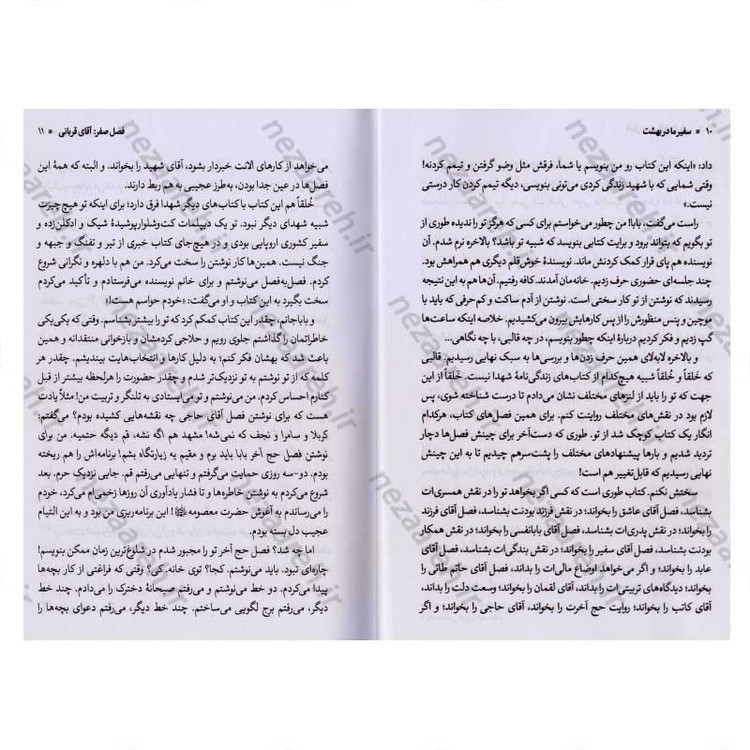 ۱۰ ■ سفیر ما در بهشت
داد: «اینکه این کتاب رو من بنویسم یا شما، فرقش مثل وضو گرفتن و تیمم کردنه!
وقتی شمایی که با شهید زندگی کردی می‌تونی بنویسی، دیگه تیمم کردن کار درستی
نیست.»
راست می‌گفت، بابا! من چطور می‌خواستم برای کسی که هرگز تو را ندیده طوری از
تو بگویم که بتواند برود و برایت کتابی بنویسد که شبیه تو باشد؟ بالاخره نرم شدم. آن
نویسنده هم پای قرار کمک کردنش ماند. نویسندهٔ خوش‌قلم دیگری هم همراهش بود.
چند جلسه‌ای حضوری حرف زدیم. خانه‌مان آمدند. کافه رفتیم. آن‌ها هم به این نتیجه
رسیدند که نوشتن از تو کار سختی است. نوشتن از آدم ساکت و کم‌حرفی که باید با
موچین و پنس منظورش را از پس کارهایش بیرون می‌کشیدیم. خلاصه اینکه ساعت‌ها
گپ زدیم و فکر کردیم دربارهٔ اینکه چطور بنویسم، در چه قالبی، با چه نگاهی...
و بالاخره لابه‌لای همین حرف زدن‌ها و بررسی‌ها به سبک نهایی رسیدیم. قالبی
که خَلقاً و خُلقاً شبیه هیچ‌کدام از کتاب‌های زندگی‌نامهٔ شهدا نیست. خَلقاً از این
جهت که تو را باید از لنزهای مختلف نشان می‌دادم تا درست شناخته شوی، پس
لازم بود در نقش‌های مختلف روایتت کنم. برای همین فصل‌های کتاب، هرکدام
انگار یک کتاب کوچک شد از تو. طوری که دست‌آخر برای چینش فصل‌ها دچار
تردید شدیم و بارها پیشنهادهای مختلف را پشت‌سرهم چیدیم تا به این چینش
نهایی رسیدیم که قابل‌تغییر هم است!
سختش نکنم. کتاب طوری است که کسی اگر بخواهد تو را در نقش همسری‌ات
بشناسد، فصل آقای عاشق را بخواند؛ در نقش فرزند بودنت بشناسد، فصل آقای فرزند
را بخواند؛ در نقش پدری‌ات بشناسد، فصل آقای بابانفسی را بخواند؛ در نقش همکار
بودنت بشناسد، فصل آقای سفیر را بخواند؛ در نقش بندگی‌ات بشناسد، فصل آقای
عابد را بخواند؛ و اگر می‌خواهد اوضاع مالی‌ات را بداند، فصل آقای حاتم طائی را
بخواند؛ دیدگاه‌های تربیتی‌ات را بداند، آقای لقمان را بخواند؛ وسعت دلت را بداند،
آقای کاتب را بخواند؛ روایت حج آخرت را بخواند، آقای حاجی را بخواند؛ و اگر
فصل صفر: آقای قربانی ■ ۱۱
می‌خواهد از کارهای الانت خبردار بشود، آقای شهید را بخواند. و البته که همهٔ این
فصل‌ها در عین جدا بودن، به‌طرز عجیبی به هم ربط دارند.
خُلقاً هم این کتاب با کتاب‌های دیگر شهدا فرق دارد؛ برای اینکه تو هیچ‌چیزت
شبیه شهدای دیگر نبود. تو یک دیپلمات کت‌وشلوارپوشیدهٔ شیک و ادکلن‌زده و
سفیر کشوری اروپایی بودی و در هیچ‌جای کتاب خبری از تیر و تفنگ و جبهه و
جنگ نیست. همین‌ها کار نوشتن را سخت می‌کرد. من هم با دلهره و نگرانی شروع
کردم. فصل‌به‌فصل می‌نوشتم و برای خانم نویسنده می‌فرستادم و تأکید می‌کردم
سخت بگیرد به این کتاب و او می‌گفت: «خودم حواسم هست!»
و باباجانم، چقدر این کتاب کمکم کرد که تو را بیشتر بشناسم. وقتی که یکی‌یکی
خاطراتمان را گذاشتم جلوی رویم و حلاجی کردمشان و بازخوانی منتقدانه و همین
باعث شد که بهشان فکر کنم؛ به دلیل کارها و انتخاب‌هایت بیندیشم. هر
کلمه که از تو نوشتم به تو نزدیک‌تر شدم و چقدر حضورت را هرلحظه بیشتر از قبل
کنارم احساس کردم. من می‌نوشتم و تو می‌ایستادی به تلنگر و تربیت من! مثلاً یادت
هست که برای نوشتن فصل آقای حاجی چه نقشه‌هایی کشیده بودم؟ می‌گفتم:
کربلا و سامرا و نجف که نمی‌شه! مشهد هم اگه نشه، قم دیگه حتمیه. من برای
نوشتن فصل حج آخر بابا باید برم و مقیم یه زیارتگاه بشم! برنامه‌اش را هم ریخته
بودم. دو-سه روزی حمایت می‌گرفتم و تنهایی می‌رفتم قم. جایی نزدیک حرم. بعد
شروع می‌کردم به نوشتن خاطره‌ها و تا فشار یادآوری آن روزها زخمی‌ام می‌کرد، خودم
را می‌رساندم به آغوش حضرت معصومه! این برنامه‌ریزی من بود و به این التیام
عجیب دل بسته بودم.
اما چه شد؟ فصل حج آخر تو را مجبور شدم در شلوغ‌ترین زمان ممکن بنویسم!
چاره‌ای نبود. باید می‌نوشتم. کجا؟ توی خانه. کی؟ وقتی که فراغتی از کار بچه‌ها
پیدا می‌کردم. دو خط می‌نوشتم و می‌رفتم صبحانهٔ دخترک را می‌دادم. چند خط
دیگر، می‌رفتم برج لگویی می‌ساختم. چند خط دیگر، می‌رفتم دعوای بچه‌ها را
nezaareh.ir